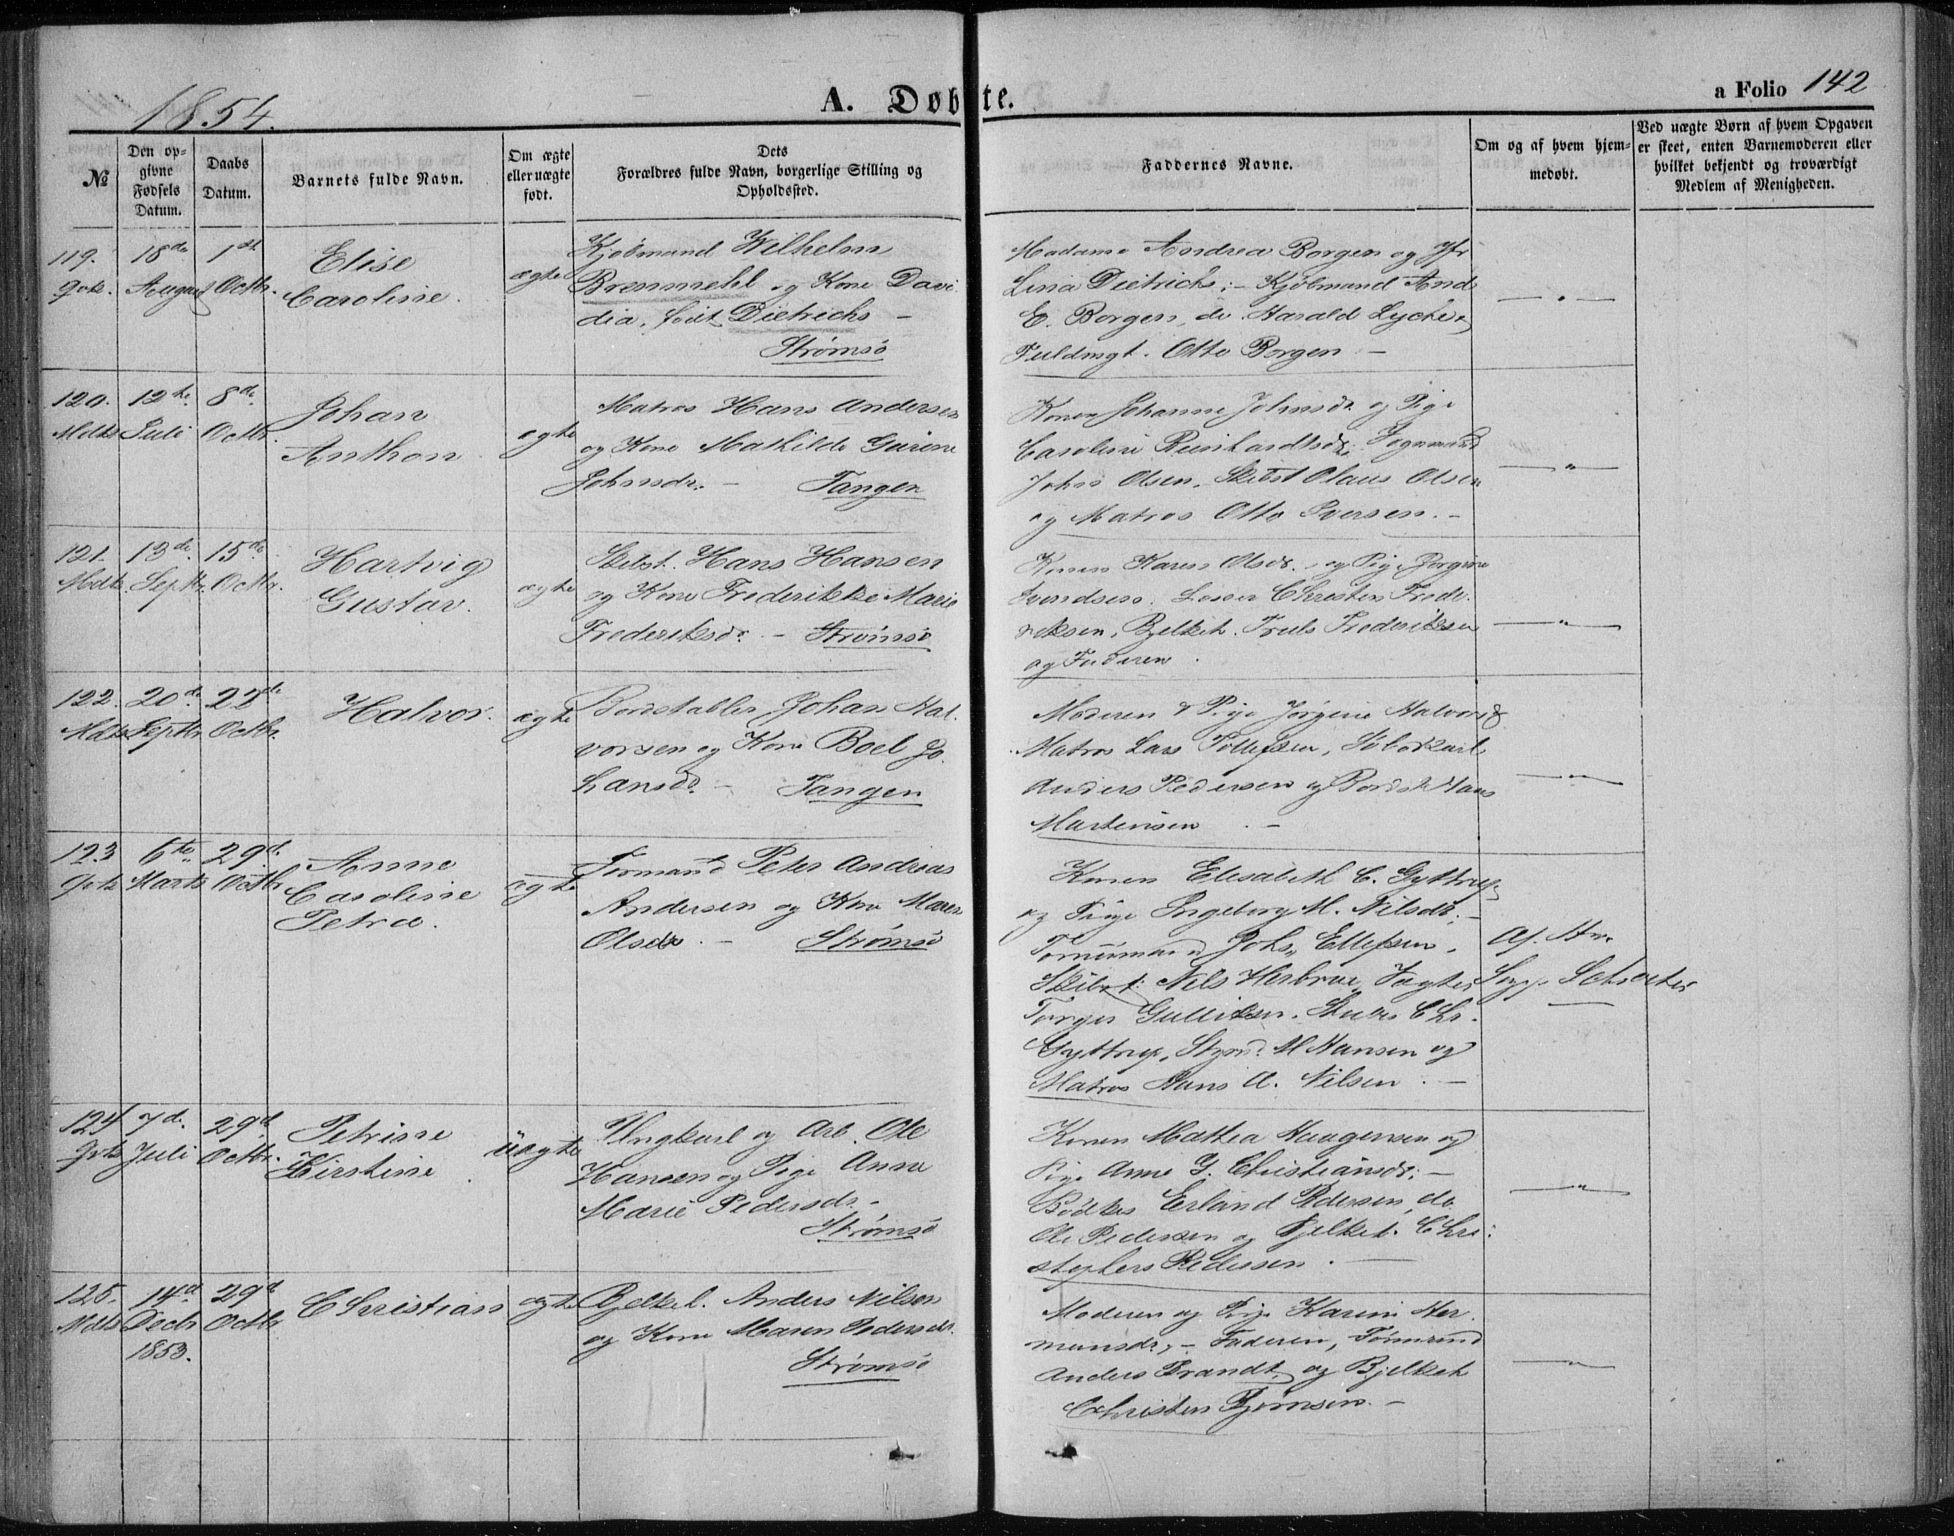 1854.
A. Døbte.
a Folio 142
No
Den op-
givne
Fødsels
Datum.
Daabs
Datum.
Barnets fulde Navn.
Om ægte
eller uægte
født.
Dets
Forældres fulde Navn, borgerlige Stilling og
Opholdssted.
Faddernes Navne.
Om og af hvem hjem-
medøbt.
Ved uægte Børn af hvem Opgaven
er skeet, enten Barnemoderen eller
hvilket bekjendt og troværdigt
Medlem af Menigheden.
119.
18de
August
1ste
Octbr.
Elise
Caroline.
ægte
Kjøbmand Wilhelm
Bremmehl og Kone Davi
dia, født Dietrichs –
Strømsø
Madame Andrea Borgen og Jfr
Lina Dietrichs; – Kjøbmand And
E. Borgen, do. Harald Lyche &
Fuldmgt. Otto Borgen –
120.
12te
Juli
8de
Octbr.
Johan
Anthon
ægte
Matros Hans Andersen
og Kone Mathilde Gurine
Johnsdr. – Tangen
Konen Johanne Johnsdr og Pige
Caroline Reinhardtsdr;
Johs Olsen, Skibst Olaus Olsen
og Matros Otto Iversen. –
121.
Mdk
13de
Septbr.
15de
Octbr.
Hartvig
Gustav.
ægte
Skibst. Hans Hansen
og Kone Frederikke Marie
Frederiksdr. – Strømsø
Konen Karen Olsdr. og Pige Jorgine
Svendsen. Losser Christen Frede-
riksen, Bjelkeh. Truls Frederiksen
og Faderen.
122.
Mdk
20de
Septbr
22de
Octbr.
Halvor.
ægte
Bordstabler Johan Hal-
vorsen og Kone Boel Jo-
hansdr. – Tangen
Moderen & Pige Jørgine Halvorsd
Matros Lars Tollefsen,
Anders Pedersen og Bordst Hans
Martinsen. –
123
6te
Marts
29de
Octbr
Anne
Caroline
Petra.
ægte
Formand Peter Andreas
Andersen og Kone Maren
Olsdr. – Strømsø
Konen Elisabeth C. Gyttrup
og Pige Ingeborg M. Nilsdr; –
Tømmermand Johs. Ellefsen.
Skibst. Nils Herbrue, Fagter
Torger Gulliksen. Chr.
Gyttrup, Styrmd. M Hansen og
Matros Hans A. Nilsen. –
Af Hr.
Sogp. Schrøter
124
7de
Juli
29de
Octbr.
Petrine
Kirstine.
uægte
Ungkarl og Arb. Ole
Hansen og Pige Anne
Marie Pedersdr. –
Strømsø
Konen Mathea Haagensen og
Pige Anne G. Christiansdr; –
Bødker Erland Pedersen, do
Ole Pedersen og Bjelkeh. Chri-
stopher Pedersen. –
125.
Mdk
14de
Decbr
1853.
29de
Octbr
Christian
ægte
Bjelkeh. Anders Nilsen
og Kone Maren Pedersdr.
Strømsø
Moderen og Pige Karen Her-
mansdr; – Faderen, Tømmermd
Anders Brandt, og Bjelkeh
Christen Bjørnsen. –